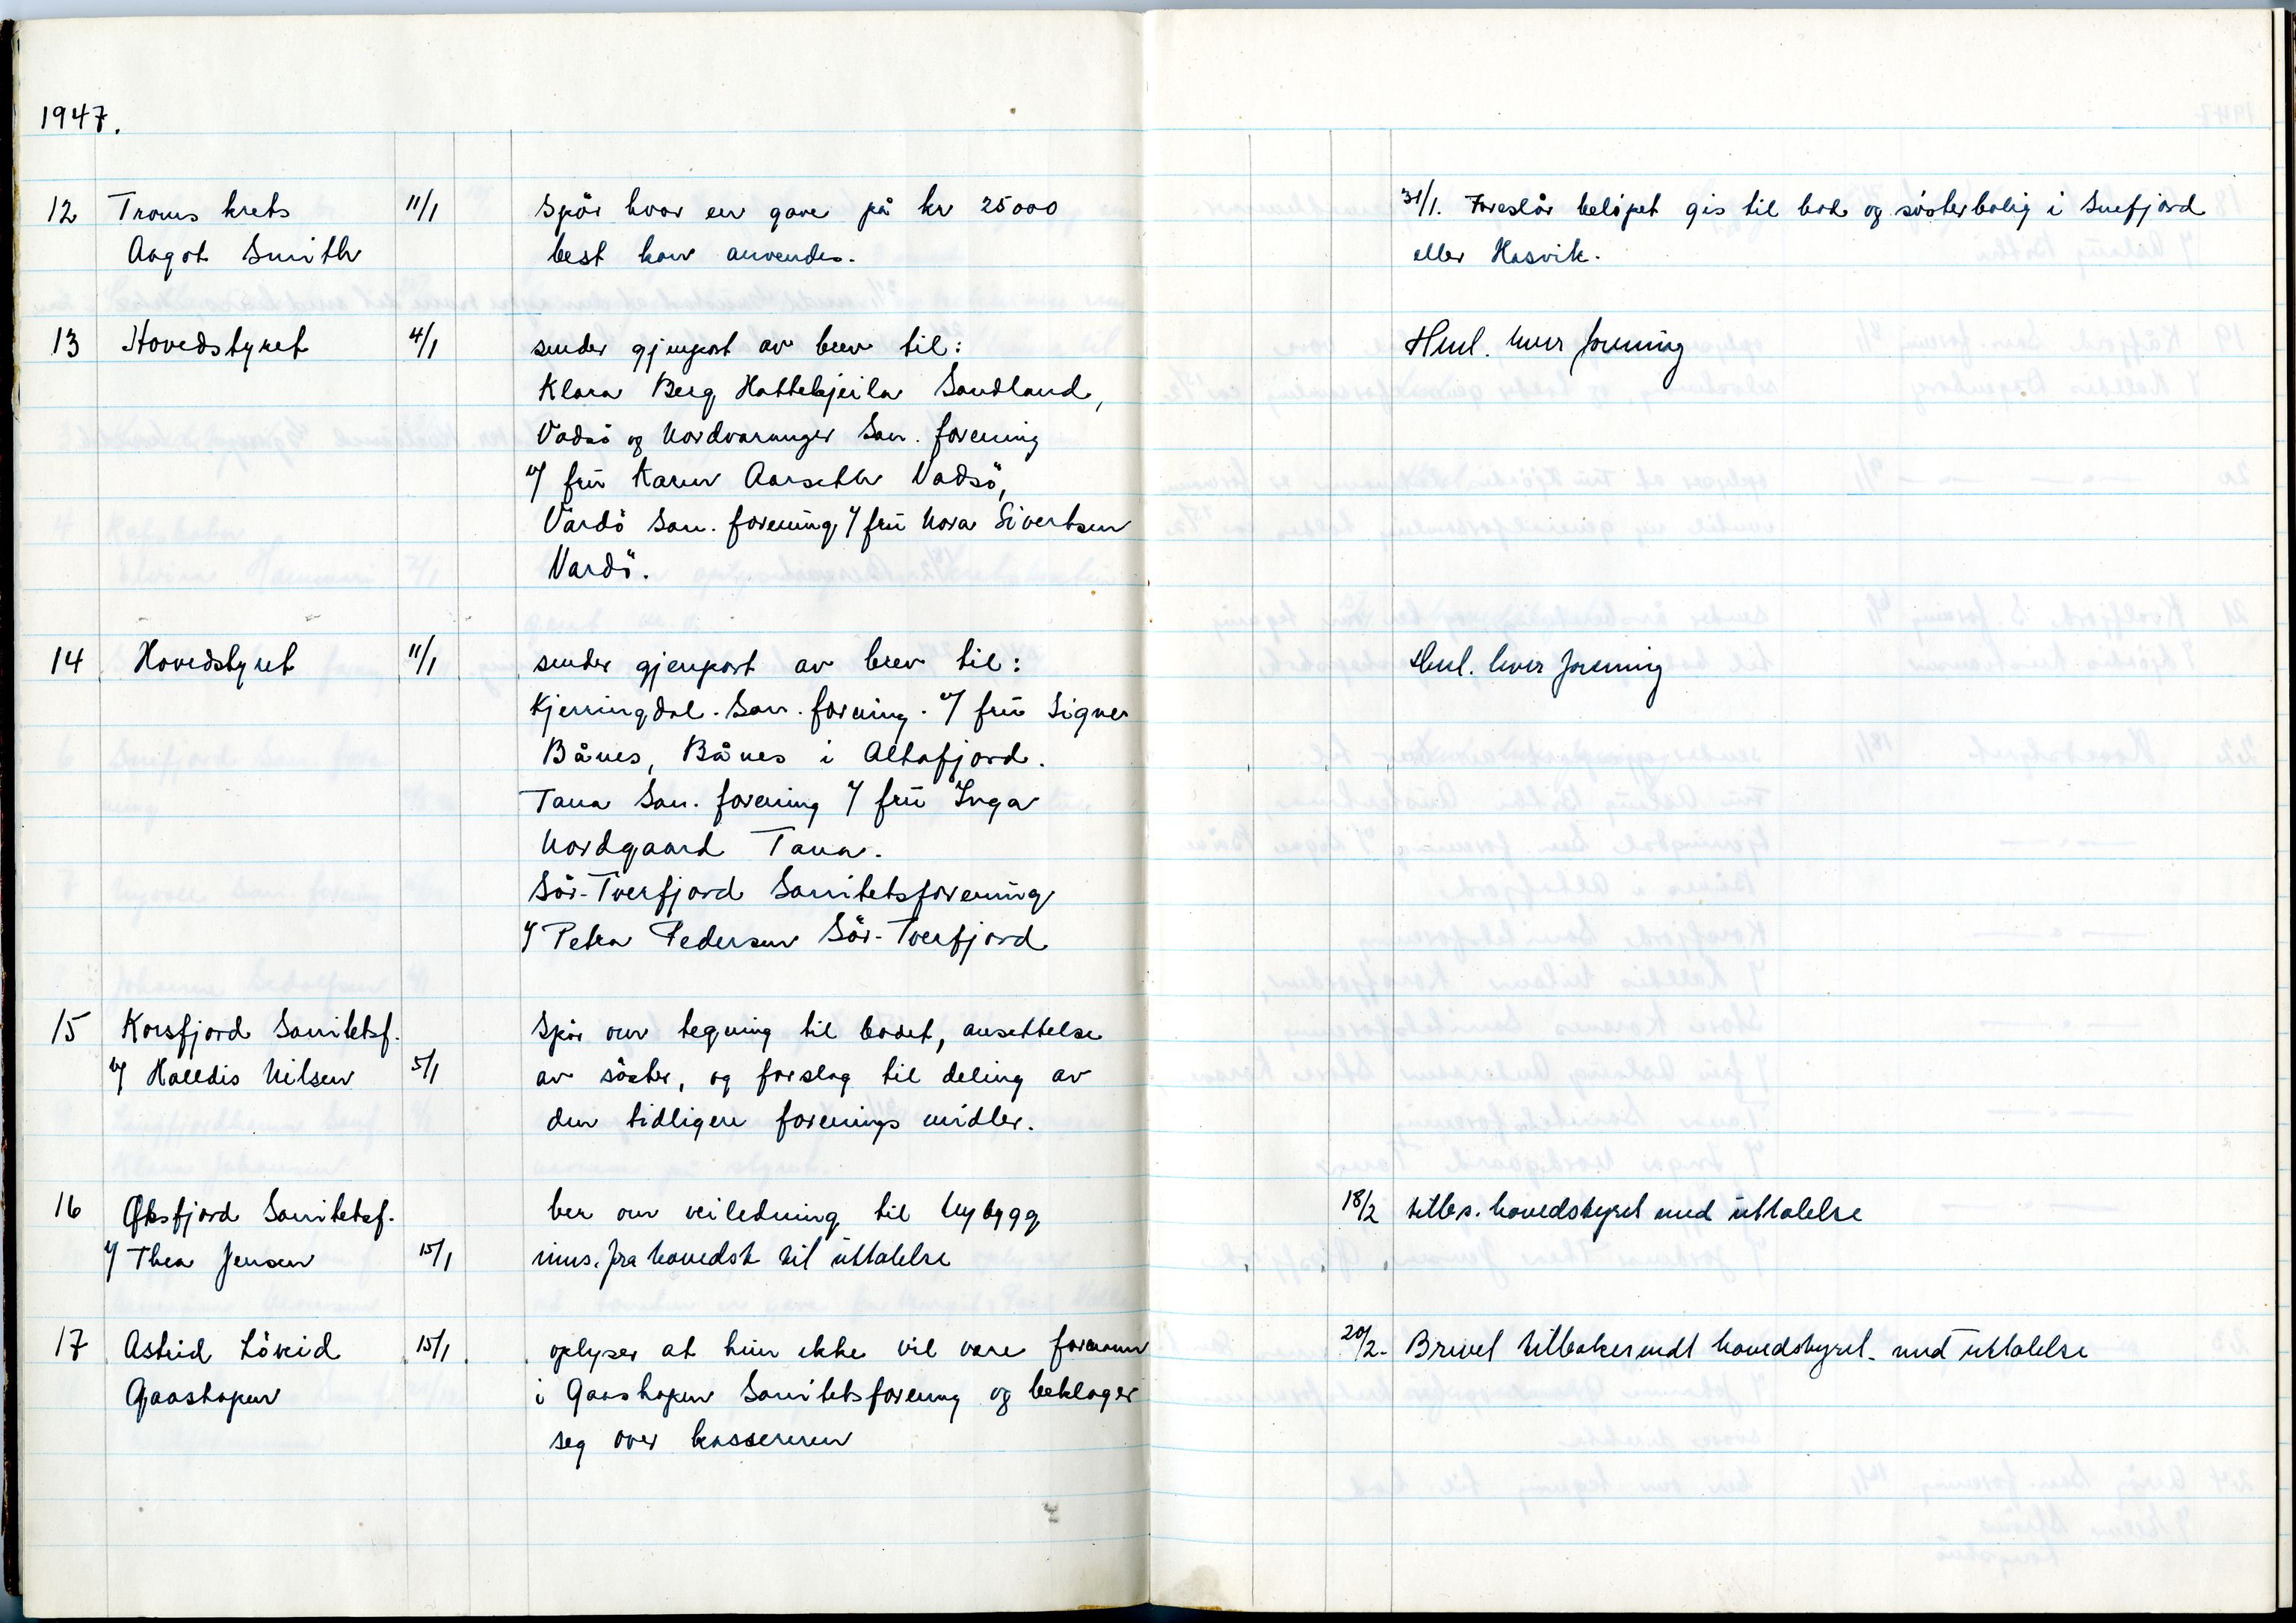 1947.
12 Troms krets 11/1 Spör hvor en gave på kr 25000 31/1. Foreslår belöpet gis til bad og söster bolig i Snefjord
Aagot Smith best kan anvendes. eller Hasvik.
13 Hovedstyret 4/1 sender gjenpart av brev til: Henl. hver forening
Klara Berg Hattekjeila Sandland,
Vadsö og Nordvaranger San. forening
v/ frü Karen Aarseth Vadsö,
Vardö San. forening, v/ frü Nora Sivertsen
Vardö.
14 Hovedstyret 11/1 sender gjenpart av brev til: Henl. hver forening
Kjerringdal. San. forening. v/ frü Signe
Bånes, Bånes i Altafjord.
Tana San. forening v/ frü Inga
Nordgaard Tana.
Sör-Tverfjord Sanitetsforening
v/ Petra Pedersen Sör-Tverfjord
15 Korsfjord Sanitetsf. Spör om tegning til badet, ansettelse
v/ Halldis Nilsen 5/1 av söster, og forslag til deling av
den tidligere forenings midler.
16 Øksfjord Sanitetsf. ber om veiledning til Nybygg 18/2 tilb.s. hovedstyret med üttalelse
v/ Thea Jensen 15/1 fra hovedst til üttalelse
17 Astrid 15/1 oplyser at hün ikke vil være formann 20/2. Brevet tilbakesendt hovedstyret. med üttalelse
Gaashopen i Gaashopen Sanitetsforening og beklager
seg over kassereren